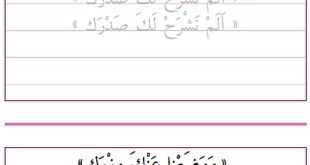 « أَلَمْ نَشْرَحْ لَكَ صَدْرَكَ »
« أَلَمْ نَشْرَحْ لَكَ صَدْرَكَ »
« وَوَضَعْنَا عَنْكَ وِزْرَكَ »